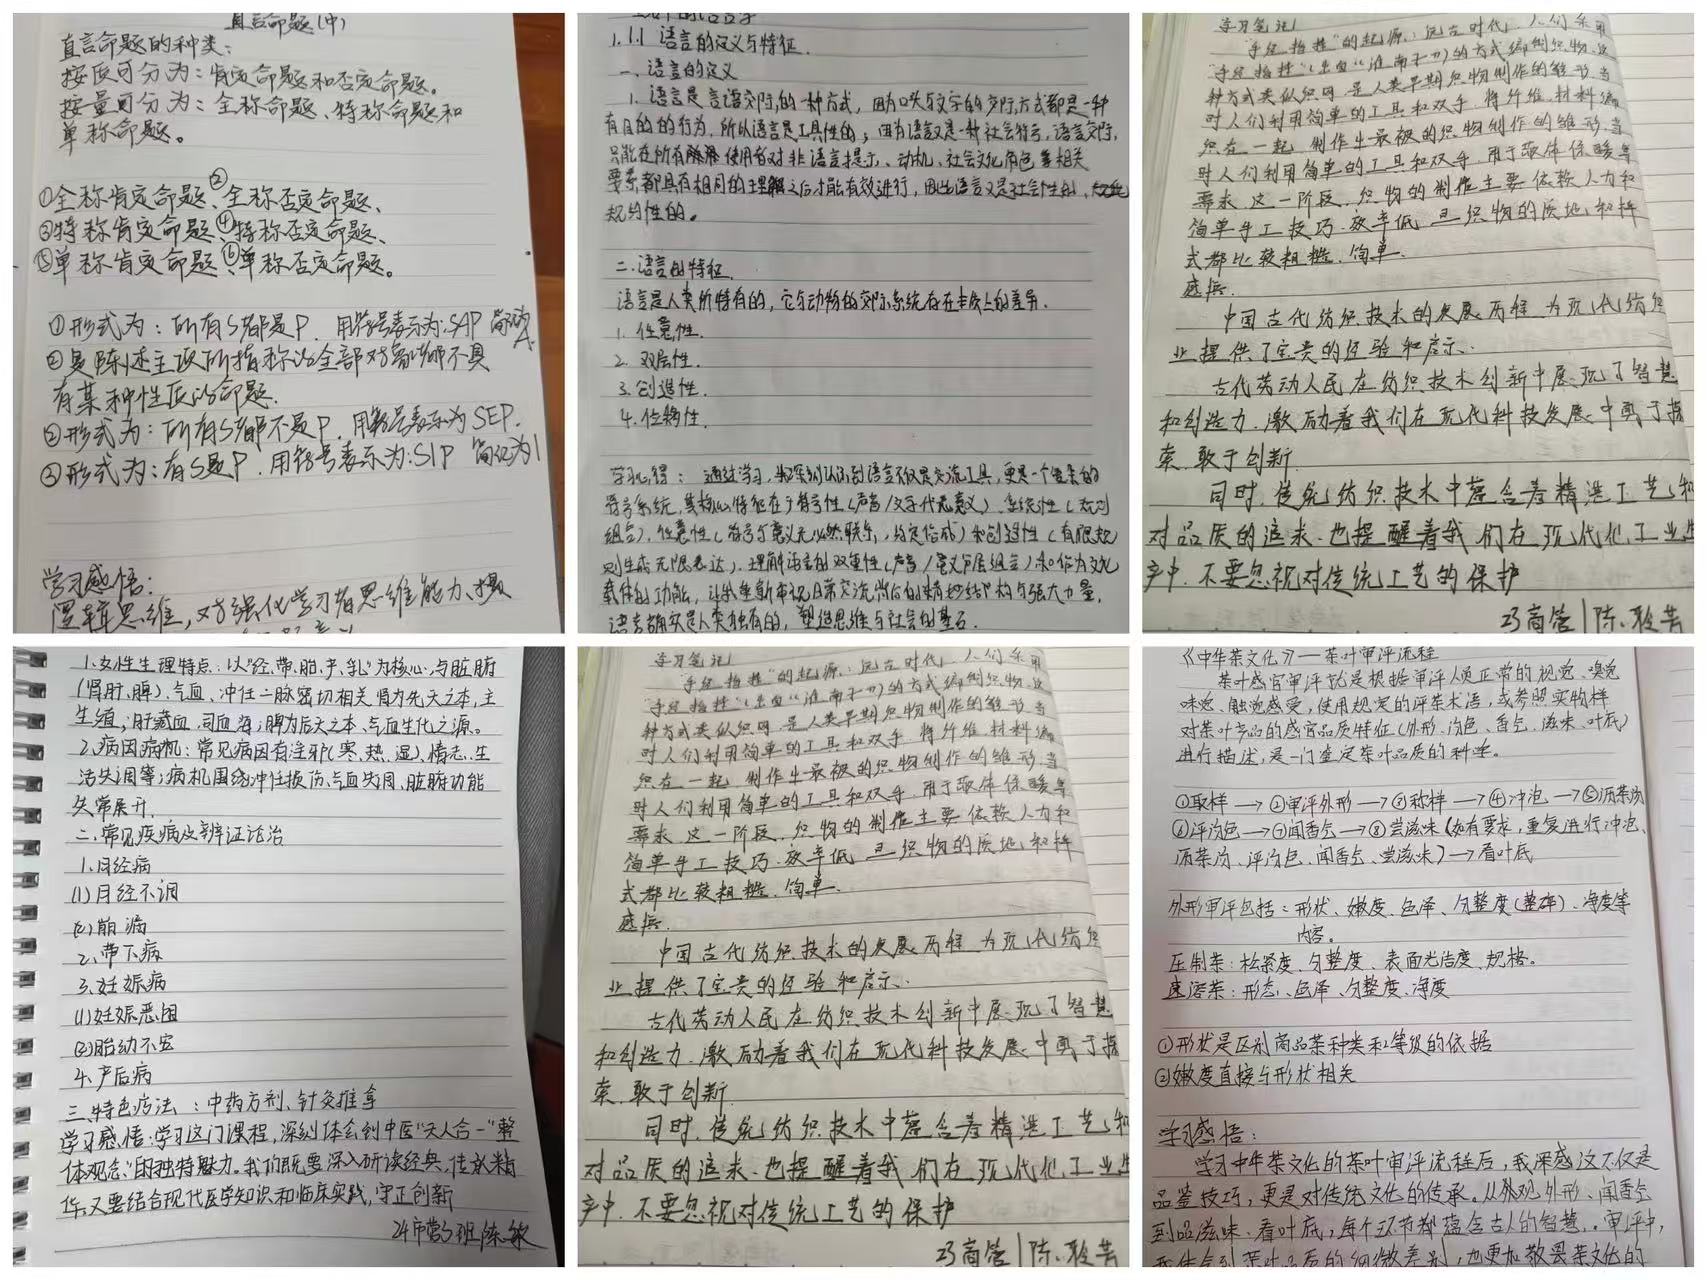 直言命题(中)
直言命题的种类：
按质可分为：肯定命题和否定命题。
按量可分为：全称命题、特称命题和
单称命题。
①全称肯定命题、②全称否定命题、
③特称肯定命题、④特称否定命题、
⑤单称肯定命题、⑥单称否定命题。
①形式为：所有S都是P，用符号表示为：SAP 简记为A
②是陈述主项所指称的全部对象都不具
有某种性质的命题.
②形式为：所有S都不是P，用符号表示为SEP.
③形式为：有S是P，用符号表示为：SIP 简记为I
学习感悟：
逻辑思维，对强化学习者思维能力、
1.1.1 语言的定义与特征.
一、语言的定义
1. 语言是言语交际的一种方式，因为口头与文字的交际方式都是一种
有目的的行为，所以语言是工具性的；因为语言又是一种社会符号，语言交际
只能在所有使用者对非语言提示、动机、社会文化角色等相关
要素都具有相同的理解之后才能有效进行，因此语言又是社会性和
规约性的。
二.语言的特征.
语言是人类所特有的，它与动物的交际系统存在本质上的差异.
1. 任意性.
2. 双层性.
3. 创造性.
4. 位移性.
学习心得： 通过学习，我深刻认识到语言不仅是交流工具，更是一个复杂的
符号系统，其核心特征在于符号性(声音/文字代表意义)、系统性(规则
组合)、任意性(符号与意义无必然联系，约定俗成)和创造性(有限规
则生成无限表达)，理解语言的双重性(声音/意义两层组合)和作为文化
载体的功能，让我重新审视日常交流背后的精妙结构与强大力量，
语言确实是人类独有的，塑造思维与社会的基石.
学习笔记1
“手经指挂”的起源：远古时代，人们采用
“手经指挂”(出自《淮南子》)的方式编制织物，这
种方式类似织网，是人类早期织物制作的雏形，当
时人们利用简单的工具和双手，将纤维材料编
织在一起，制作出最初的织物制作的雏形，当
时人们利用简单的工具和双手，用于蔽体保暖等
需求，这一阶段，织物的制作主要依赖人力和
简单手工技巧，效率低，且织物的质地和样
式都比较粗糙、简单.
感悟.
中国古代纺织技术的发展历程，为现代纺织
业提供了宝贵的经验和启示.
古代劳动人民在纺织技术创新中展现了智慧
和创造力，激励着我们在现代科技发展中勇于探
索，敢于创新.
同时，传统纺织技术中蕴含着精湛工艺和
对品质的追求，也提醒着我们在现代化工业生
产中，不要忽视对传统工艺的保护
1.女性生理特点：以“经、带、胎、产、乳”为核心，与脏腑
(肾、肝、脾)、气血、冲任二脉密切相关，肾为先天之本，主
生殖；肝藏血，司血海；脾为后天之本、气血生化之源。
2.病因病机：常见病因有淫邪(寒、热、湿)、情志、生
活失调等；病机围绕冲任损伤、气血失调、脏腑功能
失常展开.
二.常见疾病及辨证论治
1.月经病
(1)月经不调
(2)崩漏
2.带下病
3.妊娠病
(1)妊娠恶阻
(2)胎动不安
4.产后病
三.特色疗法：中药方剂、针灸推拿
学习感悟：学习这门课程，深刻体会到中医“天人合一”“整
体观念”的独特魅力。我们既要深入研读经典，传承精
华，又要结合现代医学知识和临床实践，守正创新
24市营3班 陈敏
学习笔记1
“手经指挂”的起源：远古时代，人们采用
“手经指挂”(出自《淮南子》)的方式编制织物，这
种方式类似织网，是人类早期织物制作的雏形，当
时人们利用简单的工具和双手，将纤维材料编
织在一起，制作出最初的织物制作的雏形，当
时人们利用简单的工具和双手，用于蔽体保暖等
需求，这一阶段，织物的制作主要依赖人力和
简单手工技巧，效率低，且织物的质地和样
式都比较粗糙、简单.
感悟.
中国古代纺织技术的发展历程，为现代纺织
业提供了宝贵的经验和启示.
古代劳动人民在纺织技术创新中展现了智慧
和创造力，激励着我们在现代科技发展中勇于探
索，敢于创新.
同时，传统纺织技术中蕴含着精湛工艺和
对品质的追求，也提醒着我们在现代化工业生
产中，不要忽视对传统工艺的保护
《中华茶文化》——茶叶审评流程
茶叶感官审评就是根据审评人员正常的视觉、嗅觉
味觉、触觉感受，使用规定的评茶术语，或参照实物样
对茶叶产品的感官品质特征(外形、汤色、香气、滋味、叶底)
进行描述，是一门鉴定茶叶品质的科学。
①取样→②审评外形→③称样→④冲泡→⑤沥茶汤
⑥评汤色→⑦闻香气→⑧尝滋味(如有要求，重复进行冲泡、
沥茶汤、评汤色、闻香气、尝滋味)→看叶底
外形审评包括：形状、嫩度、色泽、匀整度(整碎)、净度等
内容。
压制茶：松紧度、匀整度、表面光洁度、规格。
速溶茶：形态、色泽、匀整度、净度
①形状是区别商品茶种类和等级的依据
②嫩度直接与形状相关
学习感悟：
学习中华茶文化的茶叶审评流程后，我深感这不仅是
品鉴技巧，更是对传统文化的传承。从外观外形、闻香气
到品滋味、看叶底，每个环节都蕴含古人的智慧。审评中，
我体会到茶叶品质的细微差别，也更加敬畏茶文化的